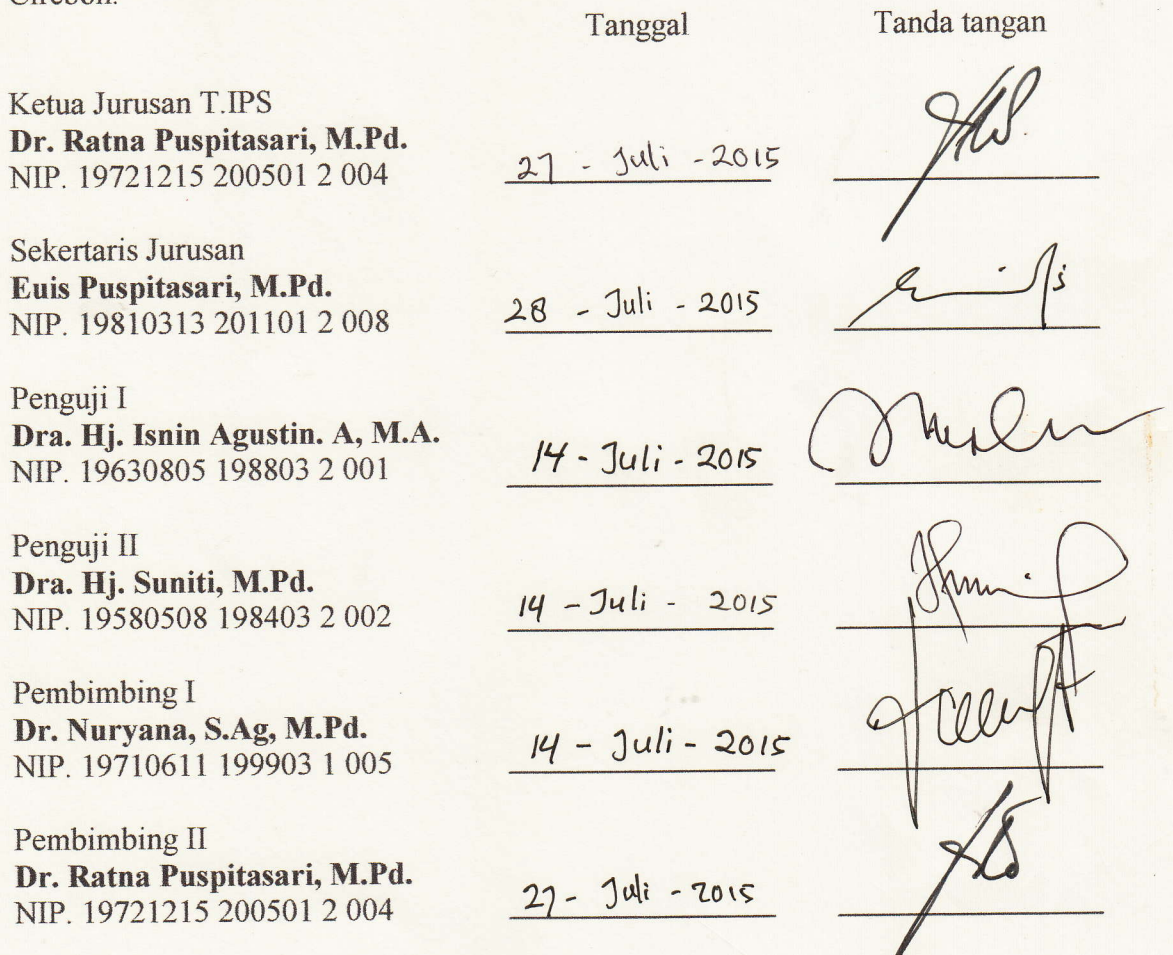 Tanggal Tanda tangan
Ketua Jurusan T.IPS
Dr. Ratna Puspitasari, M.Pd.
NIP. 19721215 200501 2 004
27 - Juli - 2015
Sekertaris Jurusan
Euis Puspitasari, M.Pd.
NIP. 19810313 201101 2 008
28 - Juli - 2015
Penguji I
Dra. Hj. Isnin Agustin. A, M.A.
NIP. 19630805 198803 2 001
14 - Juli - 2015
Penguji II
Dra. Hj. Suniti, M.Pd.
NIP. 19580508 198403 2 002
14 - Juli - 2015
Pembimbing I
Dr. Nuryana, S.Ag, M.Pd.
NIP. 19710611 199903 1 005
14 - Juli - 2015
Pembimbing II
Dr. Ratna Puspitasari, M.Pd.
NIP. 19721215 200501 2 004
27 - Juli - 2015